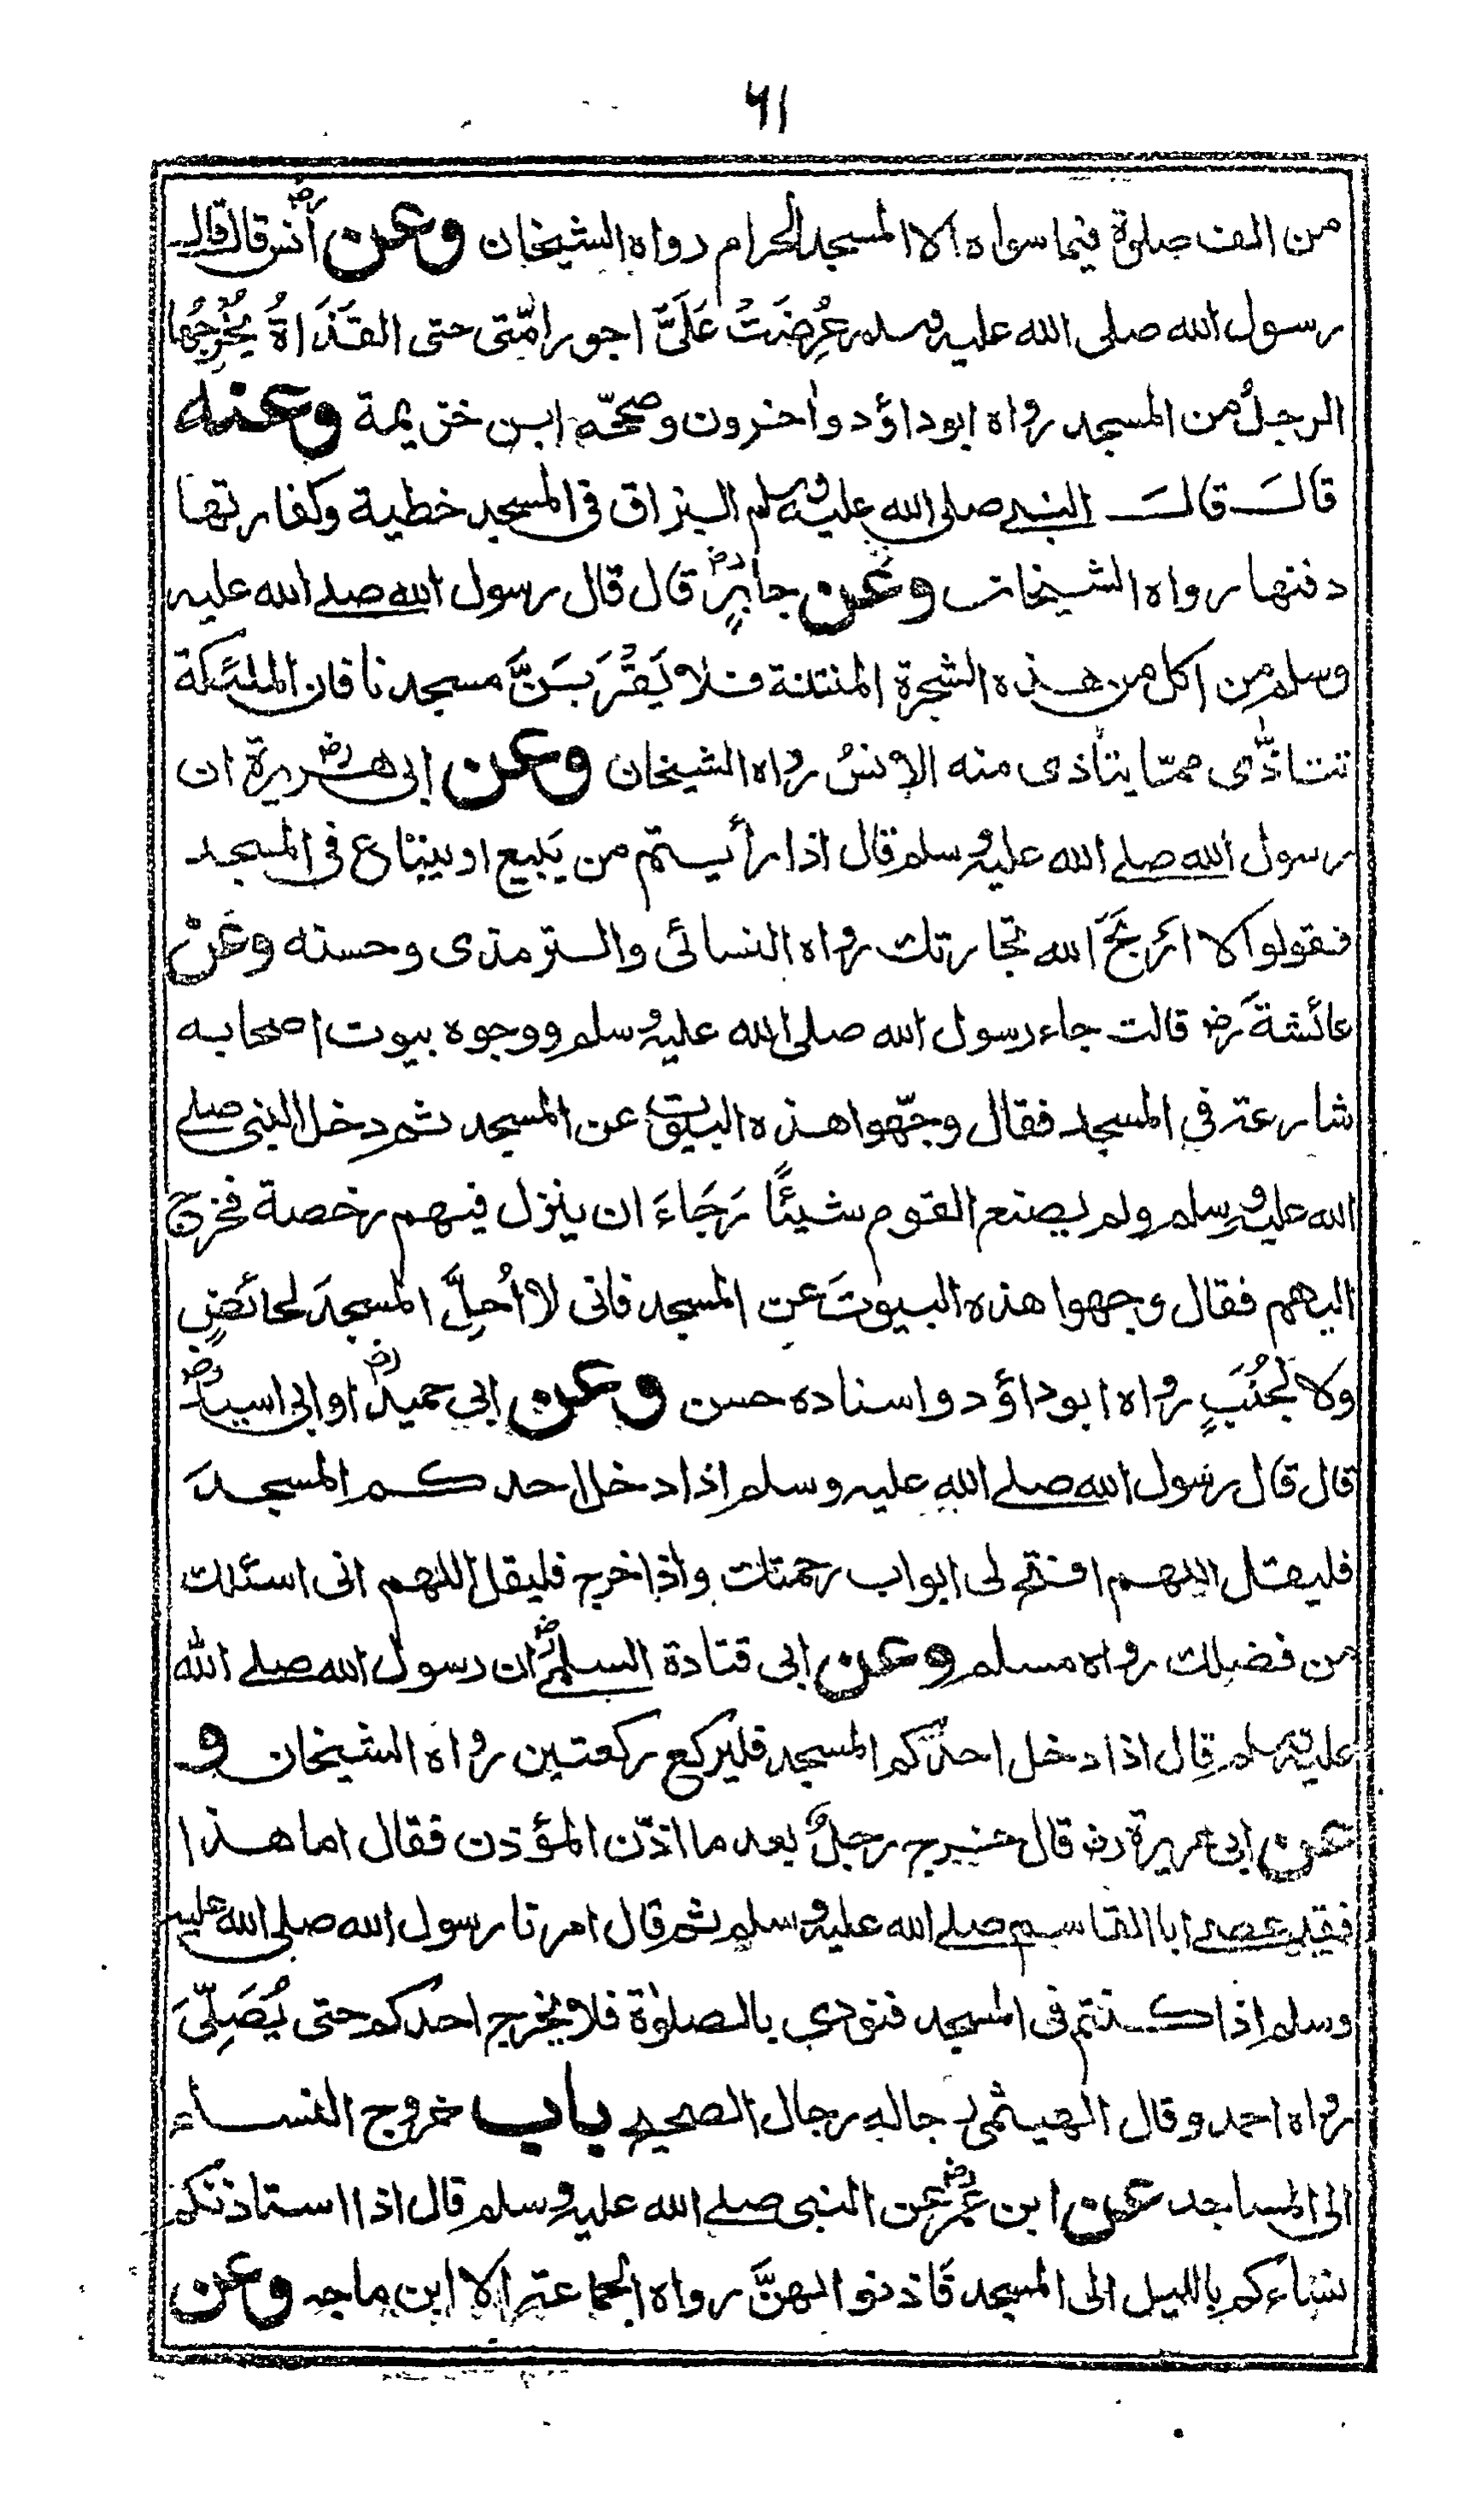 ٦١
من الف صلوة فيما سواه الا المسجد الحرام رواه الشيخان وعن انس رض قال قال
رسول الله صلى الله عليه وسلم عُرِضَتْ عَلَىَّ اجور امّتى حتى القَذَاةُ يُخْرِجُها
الرجلُ من المسجد رواه ابوداؤد واخرون وصححّه ابن خزيمة وعنه
قال قال النبي صلى الله عليه وسلم البزاق فى المسجد خطية وكفارتها
دفنها رواه الشيخان وعن جابرٍ رض قال قال رسول الله صلے الله عليه
وسلم من اكل من هذه الشجرة المنتنة فلا يَقْرَبَنَّ مسجدنا فان الملئكة
تتاذّى ممّا يتأذى منه الإنسُ رواه الشيخان وعن ابى هريرة رض ان
رسول الله صلے الله عليه وسلم قال اذا رأيتم من يَبيع او يبتاع فى المسجد
فقولوا لا اَربَحَ الله تجارتك رواه النسائى والترمذى وحسنه وعَنْ
عائشةَ رض قالت جاء رسول الله صلى الله عليه وسلم ووجوه بيوت اصحابه
شارعة في المسجد فقال وجّهوا هذه البيوت عن المسجد ثم دخل النبى صلے
الله عليه وسلم ولم يصنع القوم شيئًا رَجَاءَ ان ينزل فيهم رخصة فخرج
اليهم فقال وجهوا هذه البيوتَ عن المسجد فانى لا اُحِلَّ المسجدَ لحائضٍ
ولا لجُنُبٍ رواه ابوداؤد واسناده حسن وعن ابي حميد رض او ابى اسيد رض
قال قال رسول الله صلے الله عليه وسلم اذا دخل احدكم المسجدَ
فليقل اللهم افتح لى ابواب رحمتك واذا خرج فليقل اللهم انى اسئلك
من فضلك رواه مسلم وعن ابى قتادة السلمى رض ان رسول الله صلے الله
عليه وسلم قال اذا دخل احدكم المسجد فليركع ركعتين رواه الشيخان و
عن ابى هريرة رض قال خرج رجلٌ بعد ما اذّن المؤذن فقال اما هذا
فقد عصے ابا القاسم صلے الله عليه وسلم ثم قال امرنا رسول الله صلى الله عليه
وسلم اذا كنتم فى المسجد فنودي بالصلوٰة فلا يخرج احدكم حتى يُصَلِّىَ
رواه احمد وقال الهيثمى رجاله رجال الصحيح باب خروج النساء
الى المساجد عن ابن عُمَر رض عن النبى صلے الله عليه وسلم قال اذا استاذنكم
نساءكم بالليل الى المسجد فَاذنوا لهنَّ رواه الجماعة الا ابن ماجه وعن